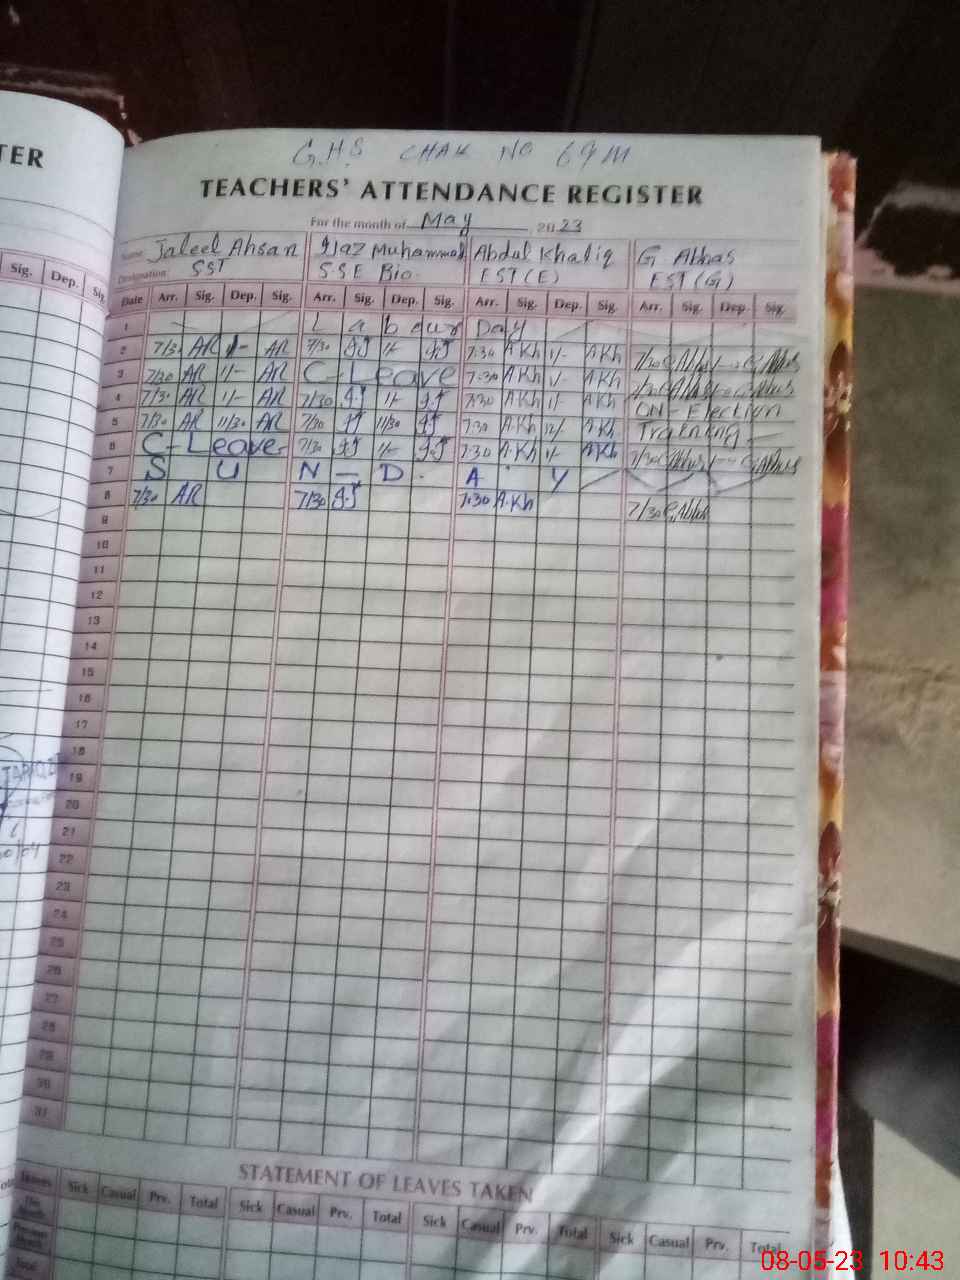 TER
G.H.S CHAK NO 69 M
TEACHERS' ATTENDANCE REGISTER
For the month of May, 2023
Name Jaleel Ahsan Ijaz Muhammad Abdul Khaliq G Abbas
Designation: SST SSE Bio. EST (E) EST (G)
Sig. Dep. Sig.
Date Arr. Sig. Dep. Sig. Arr. Sig. Dep. Sig. Arr. Sig. Dep. Sig. Arr. Sig. Dep. Sig.
1 Labour Day
2 7/30 AR 1/- AR 7/30 1/- 7:30 A.Kh 1/- A.Kh 7/30 G.Abbas G.Abbas
3 7/30 AR 1/- AR C-Leave 7:30 A.Kh 1/- A.Kh 7/30 G.Abbas G.Abbas
4 7/30 AR 1/- AR 7/30 1/- 7:30 A.Kh 1/- A.Kh ON-Election
5 7/30 AR 11/30 AR 7/30 11/30 7:30 A.Kh 12/- A.Kh Training
6 C-Leave 7/30 1/- 7:30 A.Kh 1/- A.Kh 7/30 G.Abbas G.Abbas
7 S U N - D A Y
8 7/30 AR 7/30 7:30 A.Kh 7/30 G.Abbas
9
10
11
12
13
14
15
16
17
18
19
20
21
22
23
24
25
26
27
28
29
30
31
STATEMENT OF LEAVES TAKEN
Leaves Sick Casual Prv. Total Sick Casual Prv. Total Sick Casual Prv. Total Sick Casual Prv. Total
This Month
Previous Month
Total
08-05-23 10:43